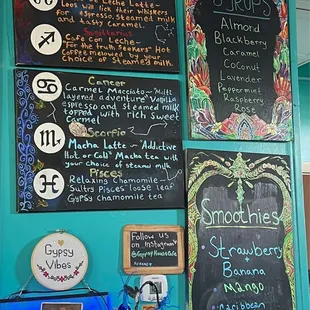 Leche Latte-
for espresso, Steamed milk
and tasty Caramel
Sagittarius
Cafe Con Leche-
for the truth Seekers" Hot
Coffee mellowed by your
choice of Steamed milk.
Cancer
Carmel Macciato-
layered adventure Vanilla
espresso and Steamed milk
topped with rich sweet
Carmel
Scorpio
Macha Latte ~ Addictive
Hot or Cold Macha tea with
your choice of steamed milk
Pisces
Relaxing Chamomile -
Sultry Pisces loose leaf
Gypsy Chamomile tea
SYRUPS
Almond
Blackberry
Caramel
Coconut
Lavender
Peppermint
Raspberry
Rose
Smoothies
Strawberry
Banana
Mango
Caribbean
Gypsy
Vibes
Follow us
on Instagram